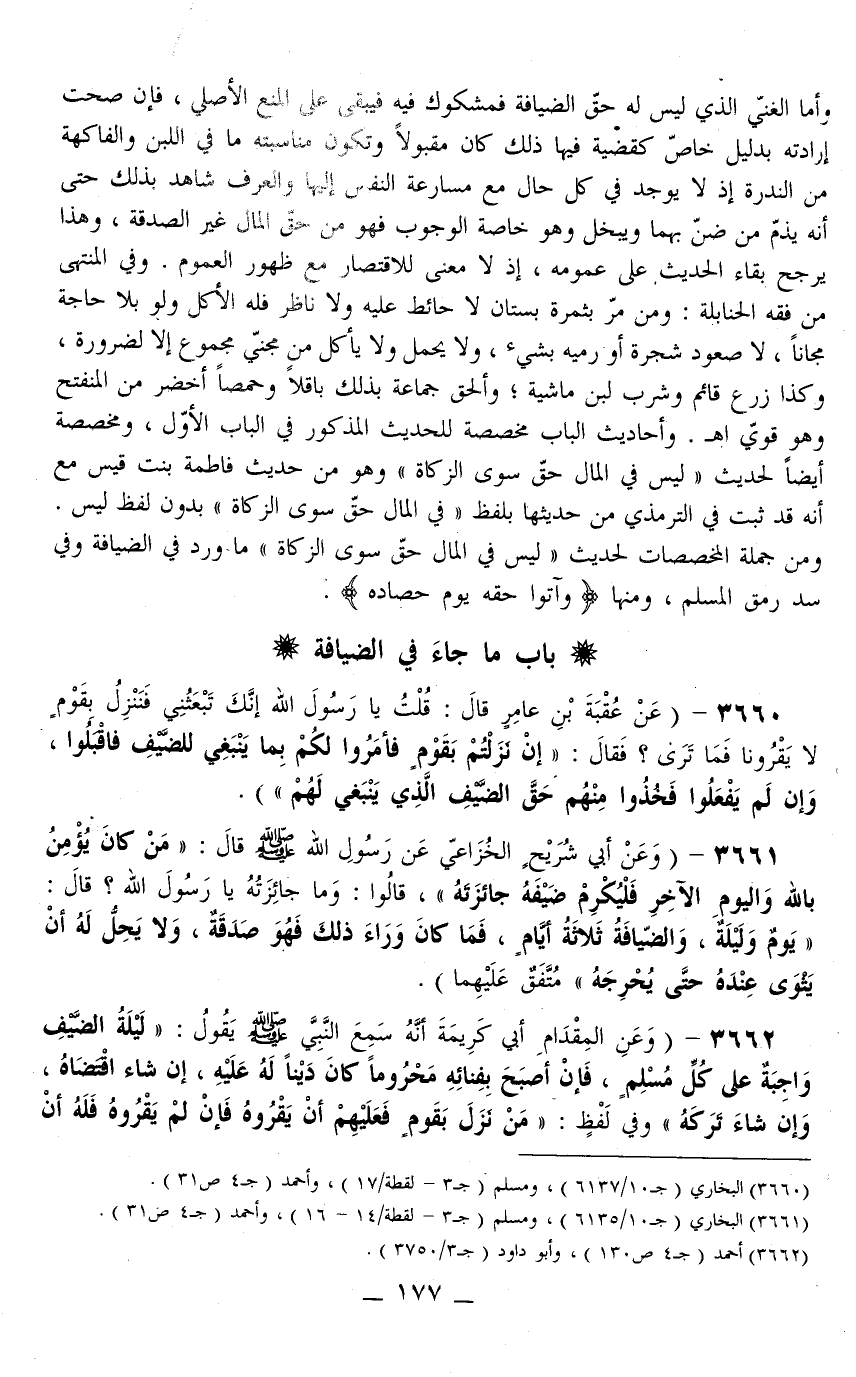 وأما الغنيّ الذي ليس له حقّ الضيافة فمشكوك فيه فيبقى على المنع الأصلي ، فإن صحت
إرادته بدليل خاصّ كقضية فيها ذلك كان مقبولاً وتكون مناسبته ما في اللبن والفاكهة
من الندرة إذ لا يوجد في كل حال مع مسارعة النفس إليها والعرف شاهد بذلك حتى
أنه يذمّ من ضنّ بهما ويبخل وهو خاصة الوجوب فهو من حقّ المال غير الصدقة ، وهذا
يرجح بقاء الحديث على عمومه ، إذ لا معنى للاقتصار مع ظهور العموم . وفي المنتهى
من فقه الحنابلة : ومن مرّ بثمرة بستان لا حائط عليه ولا ناظر فله الأكل ولو بلا حاجة
مجاناً ، لا صعود شجرة أو رميه بشيء ، ولا يحمل ولا يأكل من مجنيّ مجموع إلا لضرورة ،
وكذا زرع قائم وشرب لبن ماشية ؛ وألحق جماعة بذلك باقلاً وحمصاً أخضر من المنفتح
وهو قويّ اهـ . وأحاديث الباب مخصصة للحديث المذكور في الباب الأوّل ، ومخصصة
أيضاً لحديث « ليس في المال حقّ سوى الزكاة » وهو من حديث فاطمة بنت قيس مع
أنه قد ثبت في الترمذي من حديثها بلفظ « في المال حقّ سوى الزكاة » بدون لفظ ليس .
ومن جملة المخصصات لحديث « ليس في المال حقّ سوى الزكاة » ما ورد في الضيافة وفي
سد رمق المسلم ، ومنها ﴿ وآتوا حقه يوم حصاده ﴾ .
باب ما جاءَ في الضيافة
٣٦٦٠ – ( عَنْ عُقْبَةَ بْنِ عامِرٍ قالَ : قُلْتُ يا رَسُولَ الله إنَّكَ تَبْعَثُنِي فَنَنْزِلُ بِقَوْمٍ
لا يَقْرُونا فَمَا تَرَى ؟ فَقالَ : « إنْ نَزَلْتُمْ بَقَوْمٍ فأمَرُوا لكُمْ بِما يَنْبَغِي للضَّيْفِ فاقْبَلُوا ،
وَإن لَم يَفْعَلُوا فَخُذُوا مِنْهُم حَقَّ الضَّيْفِ الَّذِي يَنْبَغي لَهُمْ » ) .
٣٦٦١ – ( وَعَنْ أبي شُرَيْحٍ الخُزَاعيّ عَن رَسُولِ الله ﷺ قالَ : « مَنْ كانَ يُؤْمِنُ
بالله وَاليومِ الآخِرِ فَلْيُكْرِمْ ضَيْفَهُ جائزَتَهُ » ، قالُوا : وَما جائِزَتُهُ يا رَسُولَ الله ؟ قالَ :
« يَومٌ وَلَيْلَةٌ ، وَالضّيافَةُ ثَلاثَةُ أيَّامٍ ، فَمَا كانَ وَرَاءَ ذلكَ فَهُوَ صَدَقَةٌ ، وَلا يَحِلُّ لَهُ أنْ
يَثْوَى عِنْدَهُ حتَّى يُحْرِجَهُ » مُتَّفَقٌ عَلَيْهِما ) .
٣٦٦٢ – ( وَعَنِ المِقْدَامِ أبي كَرِيمَةَ أنَّهُ سَمِعَ النَّبيَّ ﷺ يَقُولُ : « لَيْلَةُ الضَّيْفِ
وَاجِبَةٌ على كُلِّ مُسْلِمٍ ، فَإنْ أصبَحَ بِفِنائِهِ مَحْرُوماً كانَ دَيْناً لَهُ عَلَيْهِ ، إن شاء اقْتَضَاهُ ،
وَإن شاءَ تَرَكَهُ » وفي لَفْظٍ : « مَنْ نَزَلَ بَقَومٍ فَعَلَيْهِمْ أنْ يَقْرُوهُ فَإنْ لمْ يَقْرُوهُ فَلَهُ أنْ
(٣٦٦٠) البخاري ( جـ٦١٣٧/١٠ ) ، ومسلم ( جـ٣ – لقطة/١٧ ) ، وأحمد ( جـ٤ ص٣١ ) .
(٣٦٦١) البخاري ( جـ٦١٣٥/١٠ ) ، ومسلم ( جـ٣ – لقطة/١٤ – ١٦ ) ، وأحمد ( جـ٤ ص٣١ ) .
(٣٦٦٢) أحمد ( جـ٤ ص١٣٠ ) ، وأبو داود ( جـ٣٧٥٠/٣ ) .
– ١٧٧ –